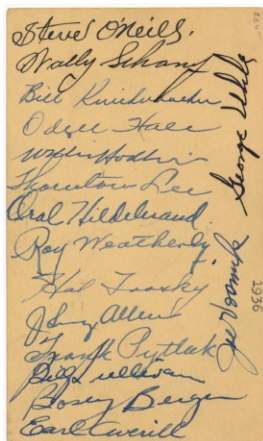 Steve O'Neill.
Wally Schang
Bill Knickerbocker
Odell Hale
Willis Hudlin
Thornton Lee
Oral Hildebrand
Roy Weatherly
Hal Trosky
Johnny Allen
Frank Pytlak
Billy Sullivan
Bosey Berger
Earl Averill
George Uhle
Joe Vosmik
1936